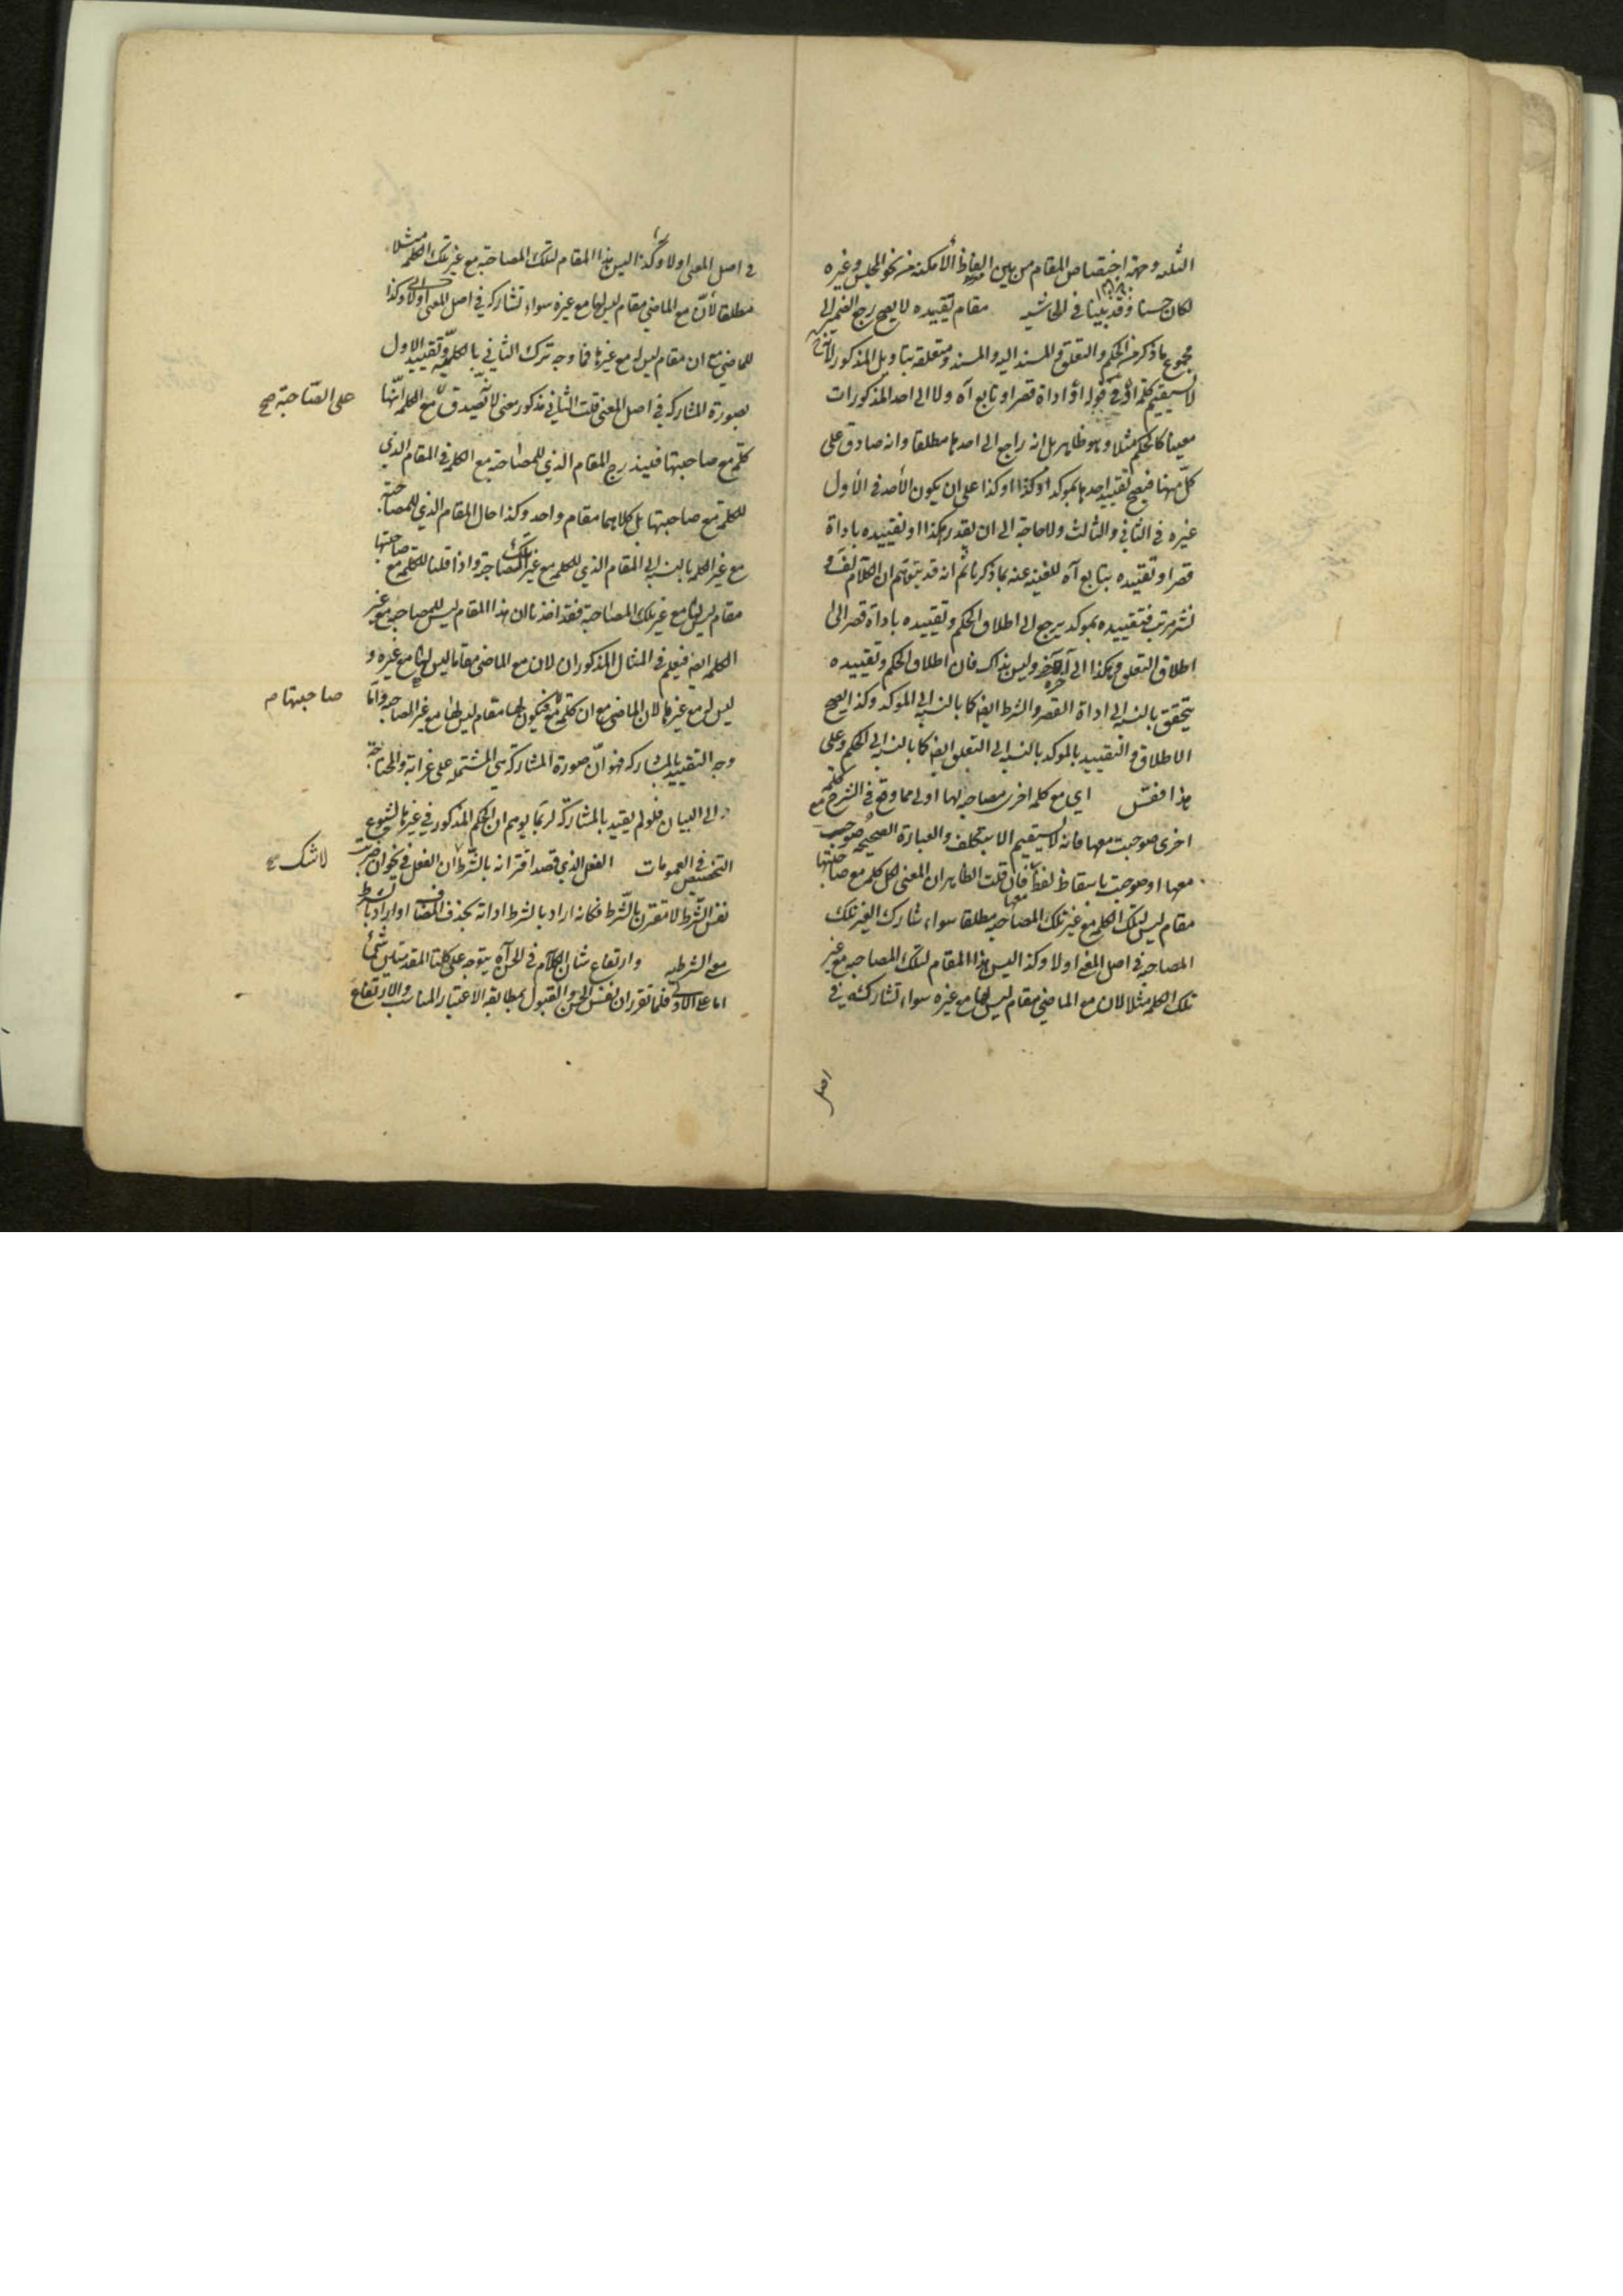 الثلثه وجهة اختصاص المقام من بين الفاظ الأمكنة من نحو المجلس وغيره
لكان حسنا وقد بينا في الحاشيه مقام تقييده لا يصح رجع الضمير الى
مجموع ما ذكر من الحكم والتعلق والمسند اليه والمسند ومتعلقه بتاويل المذكور لانه
لا يستقيم كلمة او في قوله او اداة قصر او تابع آه ولا الى احد المذكورات
معينا كالحكم مثلا وهو ظاهر بل انه راجع الى احدها مطلقا وانه صادق على
كل منها فيصح تقييد احدها بموكد او كذا او كذا على ان يكون الأحد في الأول
غيره في الثاني والثالث ولا حاجة الى ان يقدر هكذا او تقييده باداة
قصر او تقييده بتابع آه للغنيه عنه بما ذكرنا ثم انه قد يتوهم ان الكلام لف و
نشر مرتب فتقييده بموكد يرجع الى اطلاق الحكم وتقييده باداة قصر الى
اطلاق التعلق وهكذا الى آخره وليس بذاك فان اطلاق الحكم وتقييده
يتحقق بالنسبه الى اداة القصر والشرط ايضا كما بالنسبه الى الموكد وكذا يصح
الاطلاق والتقييد بالموكد بالنسبه الى التعلق ايضا كما بالنسبه الى الحكم وعلى
هذا فقس اي مع كلمه اخرى مصاحبه لها اولى مما وقع في الشرح مع كلمة
اخرى صوحبت معها فانه لا يستقيم الا بتكلف والعبارة الصحيحه صوحبت
معها او صوحبت باسقاط لفظ معها فان قلت الظاهر ان المعنى لكل كلمه مع صاحبتها
مقام ليس لتلك الكلمه مع غير تلك المصاحبه مطلقا سواء شارك الغير تلك
المصاحبه في اصل المعنى اولا وكذا ليس هذا المقام لتلك المصاحبه مع غير
تلك الكلمه مثلا لان مع الماضي مقام ليس لها مع غيره سواء تشاركه في
اصل
في اصل المعنى اولا وكذا ليس هذا المقام لتلك المصاحبة مع غير تلك الكلمه مثلا
مطلقا لأن مع الماضي مقام ليس لها مع غيره سواء تشاركه في اصل المعنى اولا وكذا
للماضي مع ان مقام ليس له مع غيرها فما وجه ترك الثاني بالكلية وتقييد الاول
بصورة المشاركه في اصل المعنى قلت الثاني مذكور معنى لانه يصدق على الصاحبة صح مع الكلمه انها
كلمة مع صاحبتها فيندرج المقام الذي للمصاحبه مع الكلمه في المقام الذي
للكلمة مع صاحبتها بل كلاهما مقام واحد وكذا حال المقام الذي للمصاحبة
مع غير الكلمه بالنسبه الى المقام الذي للكلمه مع غير تلك المصاحبة واذا قلنا للكلمه مع صاحبتها
مقام ليس لها مع غير تلك المصاحبة فقد افدنا ان هذا المقام ليس للمصاحبه مع غير
الكلمه ايضا فيعلم في المثال المذكور ان لان مع الماضي مقاما ليس لها مع غيره و
ليس له مع غيرها لان الماضي مع ان كلمة مع صاحبتها فيكون لها مقام ليس لها مع غير المصاحبه واما
وجه التقييد بالمشاركه فهو ان صورة المشاركة هي المشتمله على غرابة والمحتاجة
الى البيان فلو لم يقيد بالمشاركة لربما يوهم ان الحكم المذكور في غيرها لشيوع
التخصيص في العمومات الفعل الذي قصد اقترانه بالشرط لا شك صح ان الفعل في نحو ان ضربت
نفس الشرط لا مقترن بالشرط فكانه اراد بالشرط اداته بحذف المضاف او اراد بالشرط
معنى الشرطيه وارتفاع شان الكلام في الحسن آه يتوجه على كلتا المقدمتين شئ
اما على الاولى فلما تقرر ان نفس الحسن والقبول بمطابقة الاعتبار المناسب والارتفاع